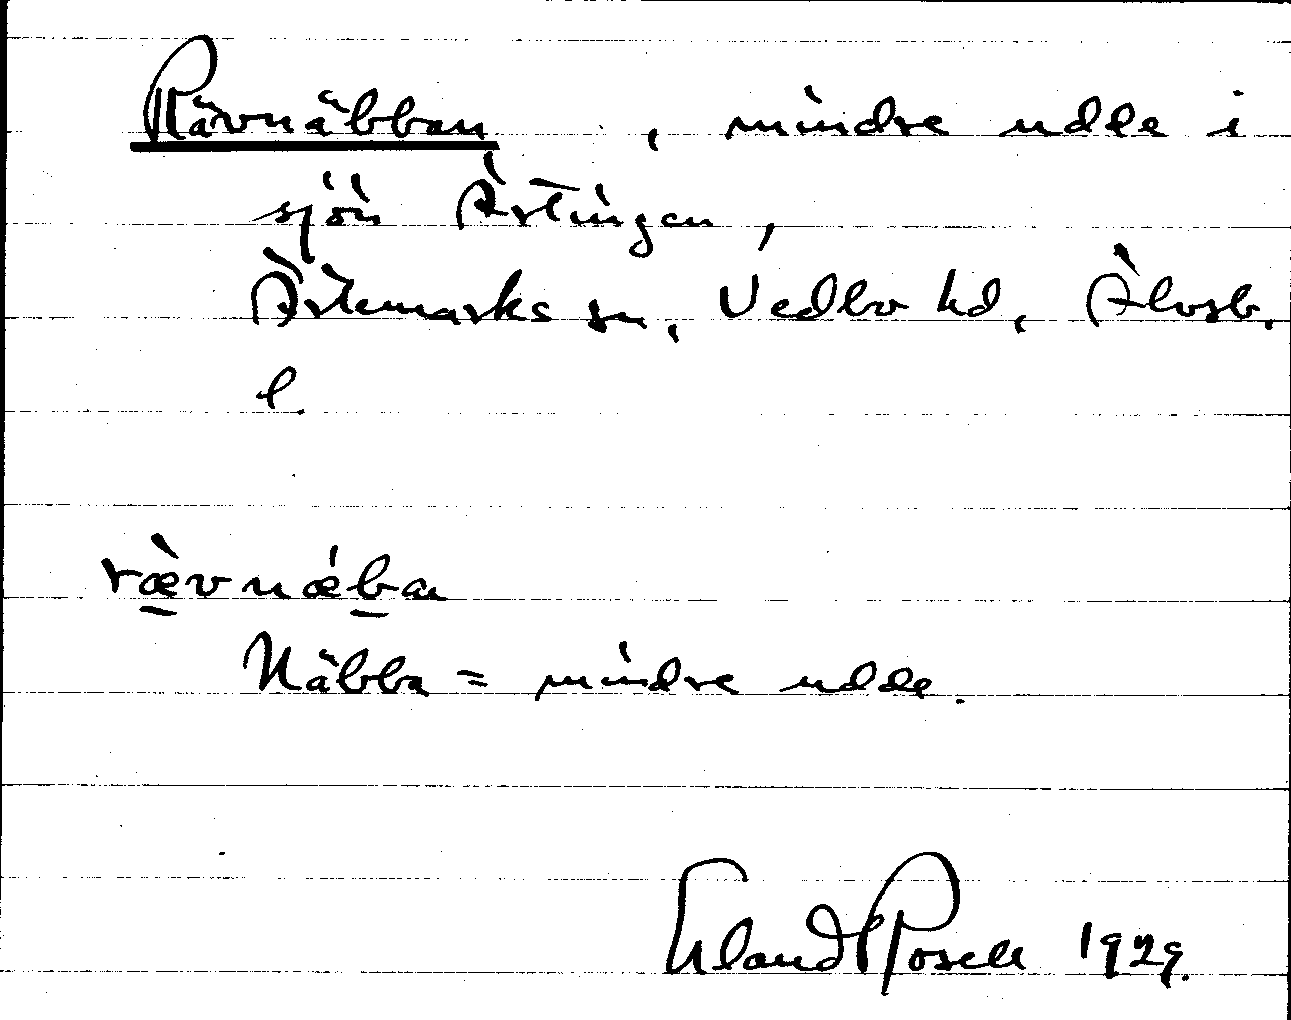 Rävnäbban, mindre udde i
sjön Ärtingen,
Ärtemarks sn, Vedbo hd, Älvsb.
l.
rævnæban
Näbba = mindre udde.
Erland Rosell 1929.